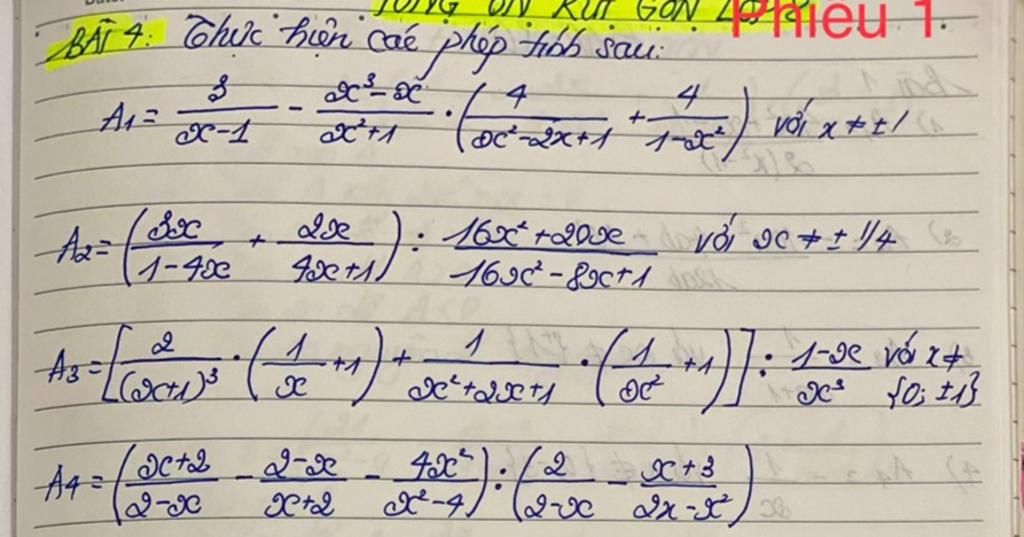 TỔNG ÔN RÚT GỌN
Phiếu 1
BÀI 4: Thực hiện các phép tính sau:
A1 = 3/(x-1) - (x³-x)/(x²+1) · (4/(x²-2x+1) + 4/(1-x²)) với x ≠ ±1
A2 = (3x/(1-4x) + 2x/(4x+1)) : (16x²+20x)/(16x²-8x+1) với x ≠ ± 1/4
A3 = [2/(x+1)³ · (1/x +1) + 1/(x²+2x+1) · (1/x² +1)] : (1-x)/x³ với x ≠ {0; ±1}
A4 = ((x+2)/(2-x) - (2-x)/(x+2) - 4x²/(x²-4)) : (2/(2-x) - (x+3)/(2x-x²))